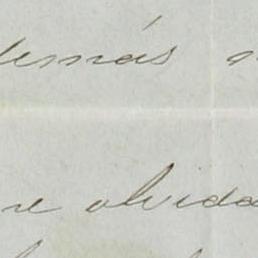 demás
re olvida